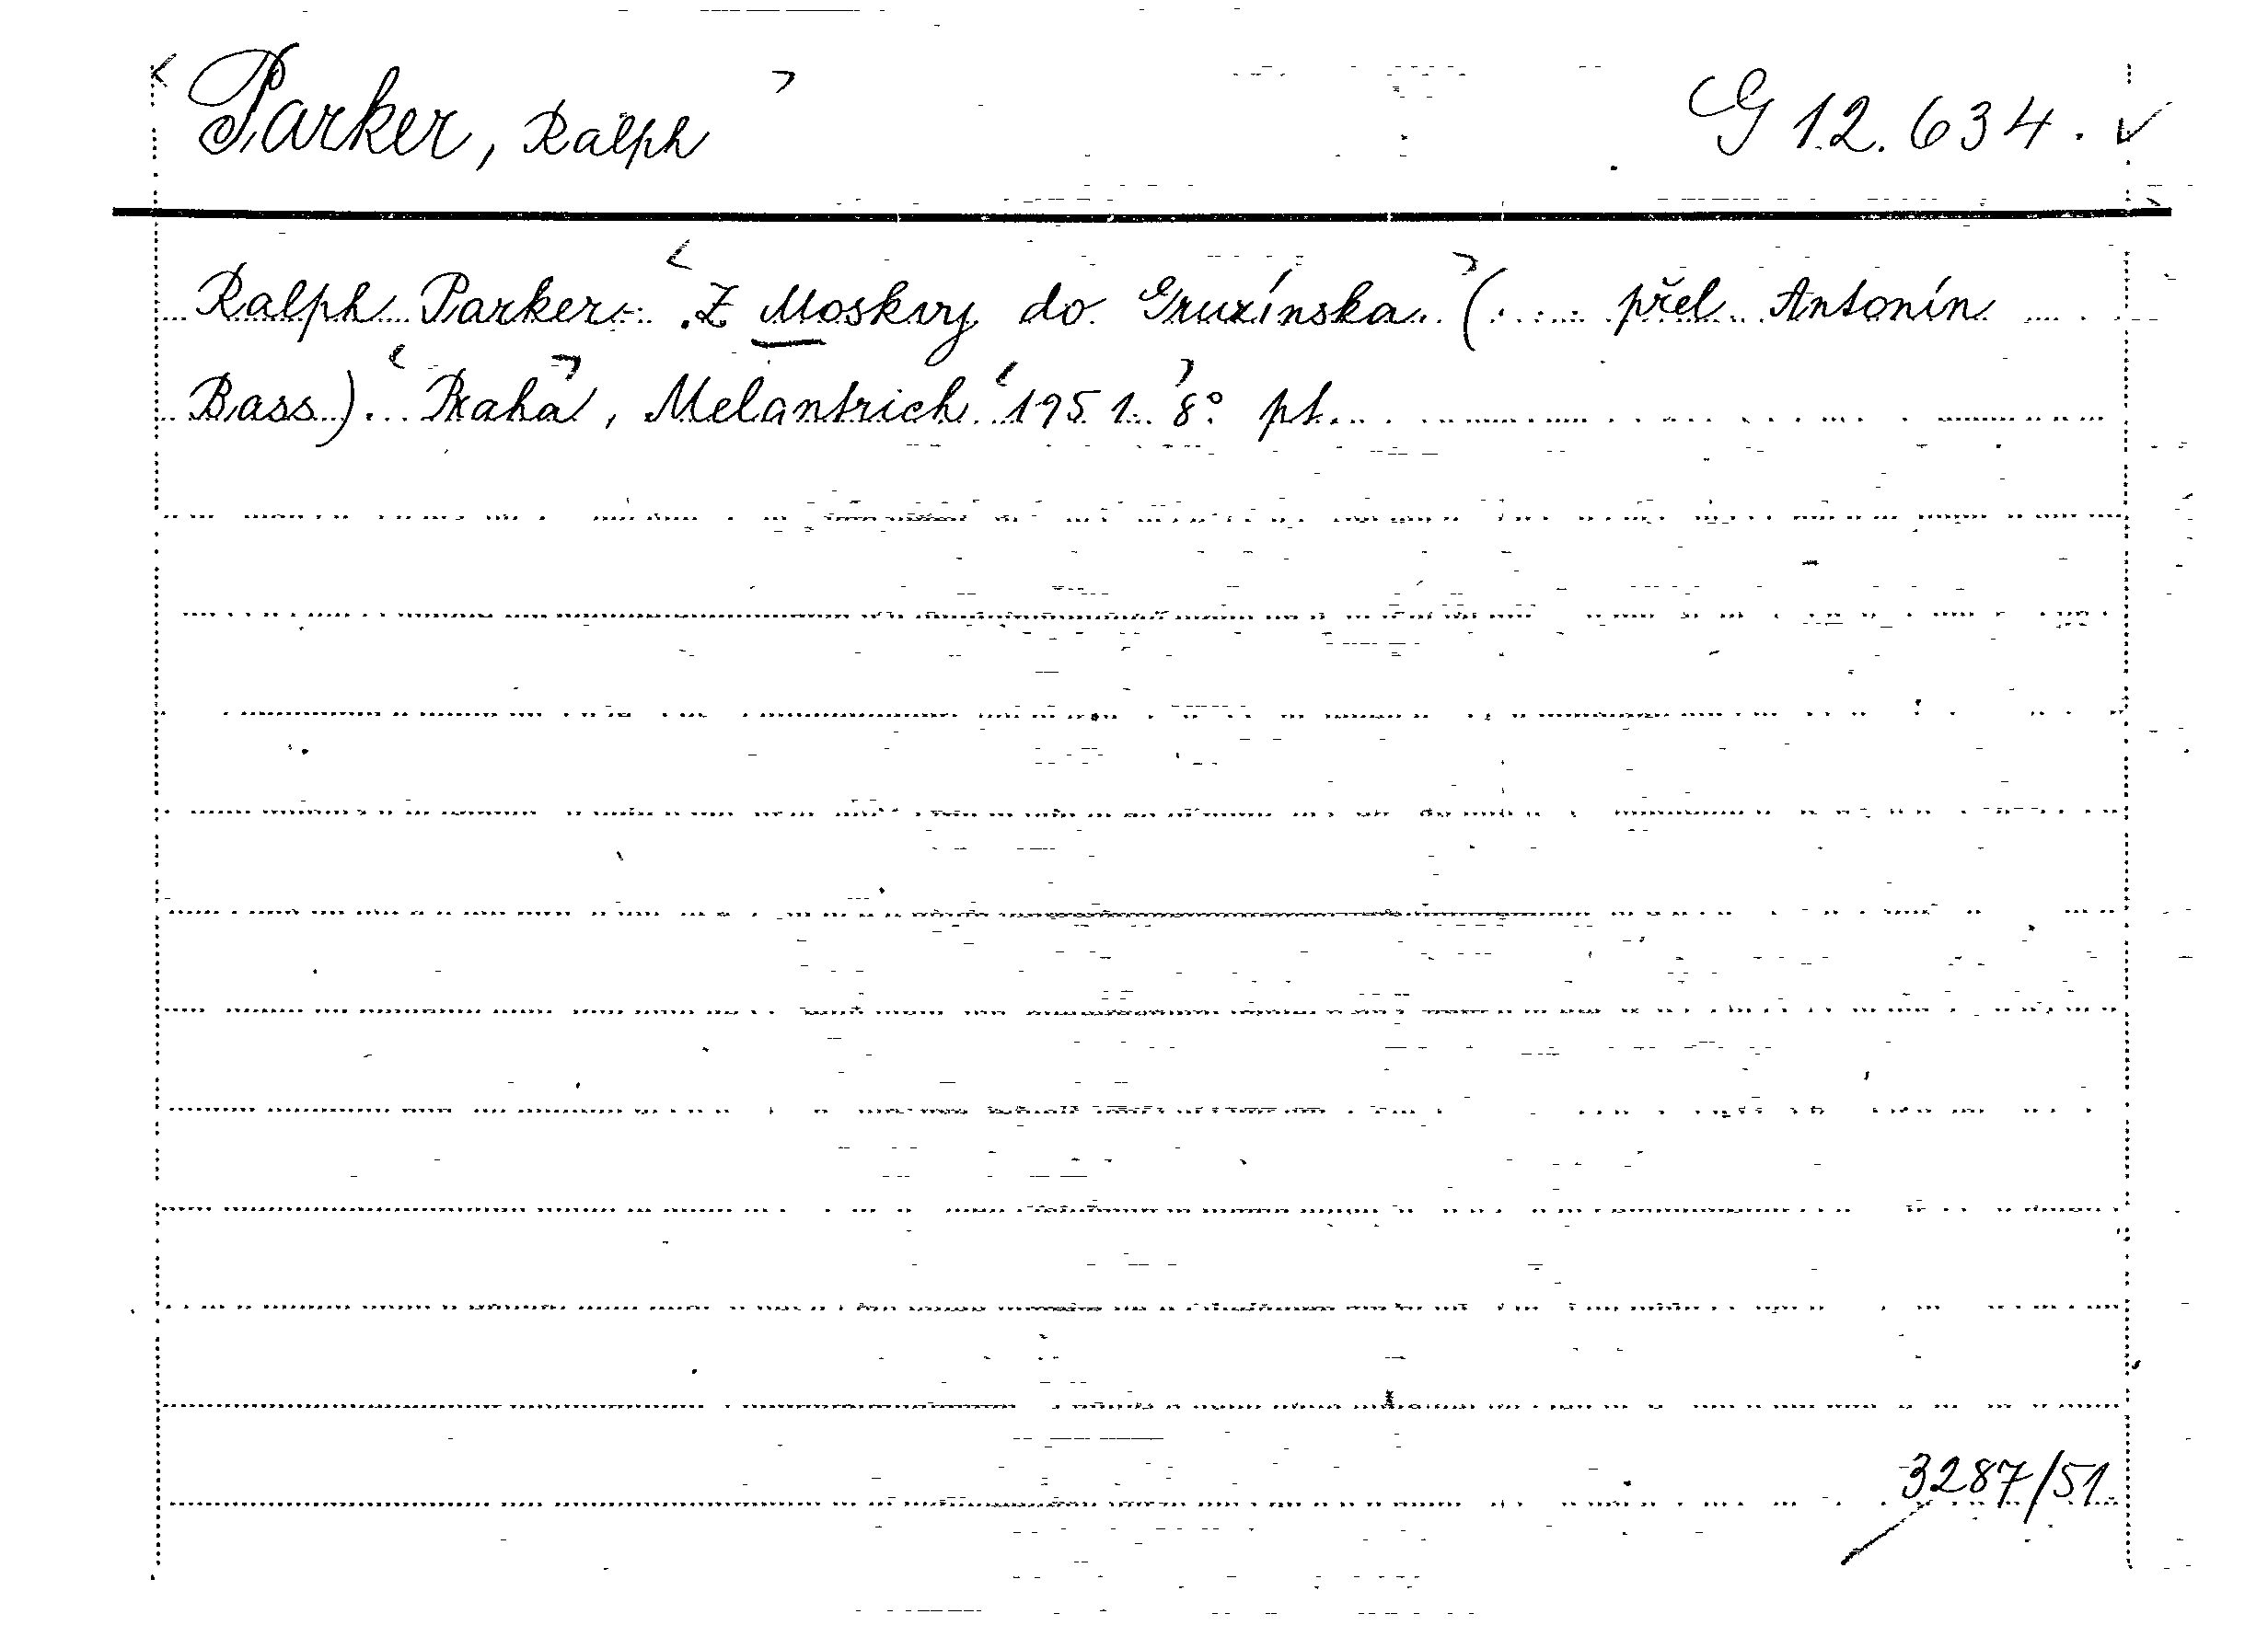 Parker, Ralph G 12.634. ✓
Ralph Parker: Z Moskvy do Gruzínska (... přel. Antonín
Bass). Praha, Melantrich 1951. 8° pt.
3287/51